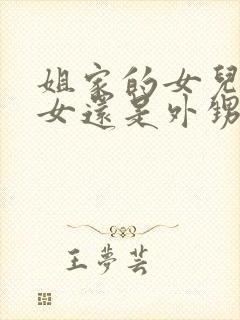 姐家的女兒
女還是外甥
王夢芸